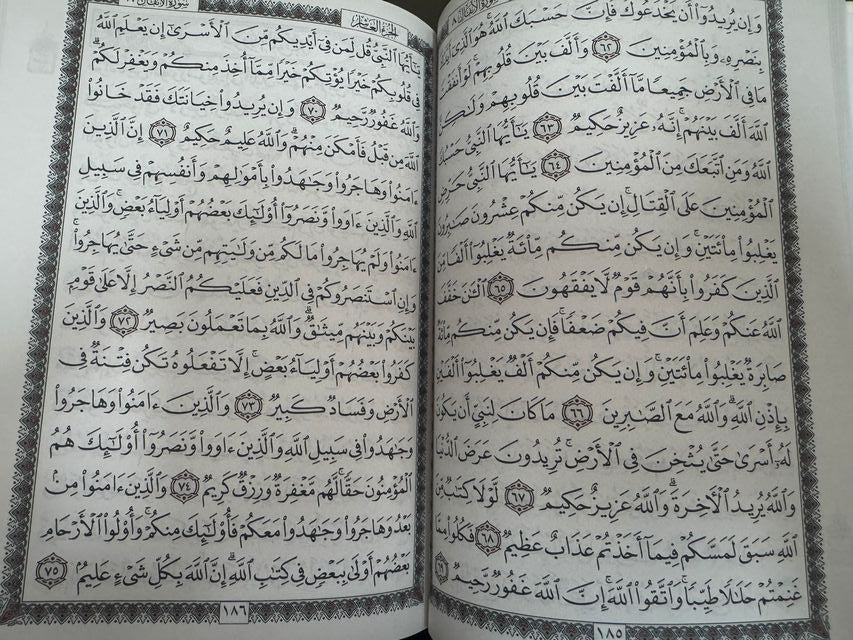 وَإِن يُرِيدُوٓا۟ أَن يَخْدَعُوكَ فَإِنَّ حَسْبَكَ ٱللَّهُ هُوَ ٱلَّذِىٓ
بِنَصْرِهِۦ وَبِٱلْمُؤْمِنِينَ ٦٢ وَأَلَّفَ بَيْنَ قُلُوبِهِمْ لَوْ أَنفَقْتَ
مَا فِى ٱلْأَرْضِ جَمِيعًا مَّآ أَلَّفْتَ بَيْنَ قُلُوبِهِمْ وَلَٰكِنَّ
ٱللَّهَ أَلَّفَ بَيْنَهُمْ إِنَّهُۥ عَزِيزٌ حَكِيمٌ ٦٣ يَٰٓأَيُّهَا ٱلنَّبِىُّ حَسْبُكَ
ٱللَّهُ وَمَنِ ٱتَّبَعَكَ مِنَ ٱلْمُؤْمِنِينَ ٦٤ يَٰٓأَيُّهَا ٱلنَّبِىُّ حَرِّضِ
ٱلْمُؤْمِنِينَ عَلَى ٱلْقِتَالِ إِن يَكُن مِّنكُمْ عِشْرُونَ صَٰبِرُونَ
يَغْلِبُوا۟ مِا۟ئَتَيْنِ وَإِن يَكُن مِّنكُم مِّا۟ئَةٌ يَغْلِبُوٓا۟ أَلْفًا مِّنَ
ٱلَّذِينَ كَفَرُوا۟ بِأَنَّهُمْ قَوْمٌ لَّا يَفْقَهُونَ ٦٥ ٱلْـَٰٔنَ خَفَّفَ
ٱللَّهُ عَنكُمْ وَعَلِمَ أَنَّ فِيكُمْ ضَعْفًا فَإِن يَكُن مِّنكُم مِّا۟ئَةٌ
صَابِرَةٌ يَغْلِبُوا۟ مِا۟ئَتَيْنِ وَإِن يَكُن مِّنكُمْ أَلْفٌ يَغْلِبُوٓا۟ أَلْفَيْنِ
بِإِذْنِ ٱللَّهِ وَٱللَّهُ مَعَ ٱلصَّٰبِرِينَ ٦٦ مَا كَانَ لِنَبِىٍّ أَن يَكُونَ
لَهُۥٓ أَسْرَىٰ حَتَّىٰ يُثْخِنَ فِى ٱلْأَرْضِ تُرِيدُونَ عَرَضَ ٱلدُّنْيَا
وَٱللَّهُ يُرِيدُ ٱلْـَٔاخِرَةَ وَٱللَّهُ عَزِيزٌ حَكِيمٌ ٦٧ لَّوْلَا كِتَٰبٌ مِّنَ
ٱللَّهِ سَبَقَ لَمَسَّكُمْ فِيمَآ أَخَذْتُمْ عَذَابٌ عَظِيمٌ ٦٨ فَكُلُوا۟ مِمَّا
غَنِمْتُمْ حَلَٰلًا طَيِّبًا وَٱتَّقُوا۟ ٱللَّهَ إِنَّ ٱللَّهَ غَفُورٌ رَّحِيمٌ ٦٩
١٨٥
الجزء العاشر
سورة الأنفال
يَٰٓأَيُّهَا ٱلنَّبِىُّ قُل لِّمَن فِىٓ أَيْدِيكُم مِّنَ ٱلْأَسْرَىٰٓ إِن يَعْلَمِ ٱللَّهُ
فِى قُلُوبِكُمْ خَيْرًا يُؤْتِكُمْ خَيْرًا مِّمَّآ أُخِذَ مِنكُمْ وَيَغْفِرْ لَكُمْ
وَٱللَّهُ غَفُورٌ رَّحِيمٌ ٧٠ وَإِن يُرِيدُوا۟ خِيَانَتَكَ فَقَدْ خَانُوا۟
ٱللَّهَ مِن قَبْلُ فَأَمْكَنَ مِنْهُمْ وَٱللَّهُ عَلِيمٌ حَكِيمٌ ٧١ إِنَّ ٱلَّذِينَ
ءَامَنُوا۟ وَهَاجَرُوا۟ وَجَٰهَدُوا۟ بِأَمْوَٰلِهِمْ وَأَنفُسِهِمْ فِى سَبِيلِ
ٱللَّهِ وَٱلَّذِينَ ءَاوَوا۟ وَّنَصَرُوٓا۟ أُو۟لَٰٓئِكَ بَعْضُهُمْ أَوْلِيَآءُ بَعْضٍ وَٱلَّذِينَ
ءَامَنُوا۟ وَلَمْ يُهَاجِرُوا۟ مَا لَكُم مِّن وَلَٰيَتِهِم مِّن شَىْءٍ حَتَّىٰ يُهَاجِرُوا۟
وَإِنِ ٱسْتَنصَرُوكُمْ فِى ٱلدِّينِ فَعَلَيْكُمُ ٱلنَّصْرُ إِلَّا عَلَىٰ قَوْمٍۭ
بَيْنَكُمْ وَبَيْنَهُم مِّيثَٰقٌ وَٱللَّهُ بِمَا تَعْمَلُونَ بَصِيرٌ ٧٢ وَٱلَّذِينَ
كَفَرُوا۟ بَعْضُهُمْ أَوْلِيَآءُ بَعْضٍ إِلَّا تَفْعَلُوهُ تَكُن فِتْنَةٌ فِى
ٱلْأَرْضِ وَفَسَادٌ كَبِيرٌ ٧٣ وَٱلَّذِينَ ءَامَنُوا۟ وَهَاجَرُوا۟
وَجَٰهَدُوا۟ فِى سَبِيلِ ٱللَّهِ وَٱلَّذِينَ ءَاوَوا۟ وَّنَصَرُوٓا۟ أُو۟لَٰٓئِكَ هُمُ
ٱلْمُؤْمِنُونَ حَقًّا لَّهُم مَّغْفِرَةٌ وَرِزْقٌ كَرِيمٌ ٧٤ وَٱلَّذِينَ ءَامَنُوا۟ مِنۢ
بَعْدُ وَهَاجَرُوا۟ وَجَٰهَدُوا۟ مَعَكُمْ فَأُو۟لَٰٓئِكَ مِنكُمْ وَأُو۟لُوا۟ ٱلْأَرْحَامِ
بَعْضُهُمْ أَوْلَىٰ بِبَعْضٍ فِى كِتَٰبِ ٱللَّهِ إِنَّ ٱللَّهَ بِكُلِّ شَىْءٍ عَلِيمٌۢ ٧٥
١٨٦